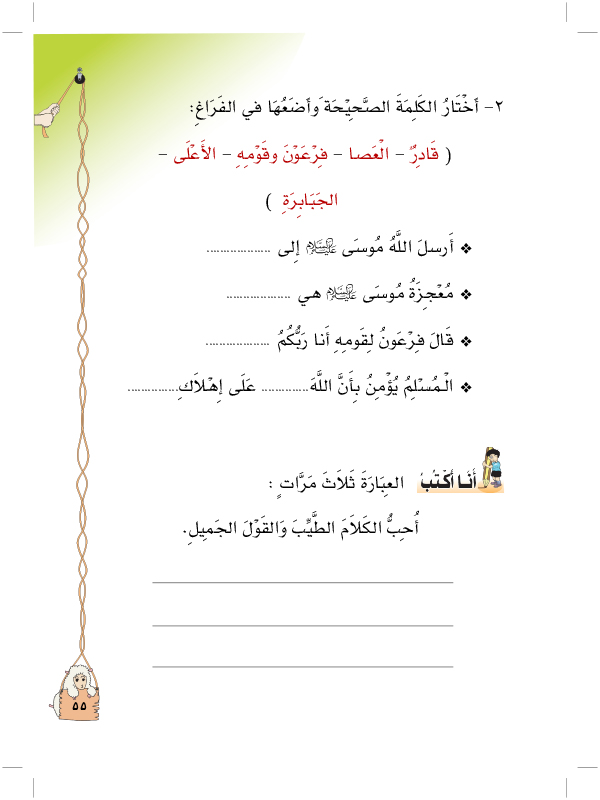 ٢- أخْتَارُ الكَلِمَةَ الصَّحِيْحَةَ وَأضَعُهَا في الفَرَاغِ:
( قَادِرٌ - الْعَصا - فِرْعَوْنَ وقَوْمِهِ - الأَعْلَى -
الجَبَابِرَةِ )
❖ أَرسلَ اللَّهُ مُوسَى عَلَيْهِ السَّلَام إِلى ...................
❖ مُعْجِزَةُ مُوسَى عَلَيْهِ السَّلَام هي ...................
❖ قَالَ فِرْعَونُ لِقَومِهِ أَنا رَبُّكُمُ ...................
❖ الْمُسْلِمُ يُؤْمِنُ بِأَنَّ اللَّهَ.............. عَلَى إِهْلاَكِ...............
أَنَا أَكْتُبُ العِبَارَةَ ثَلاَثَ مَرَّاتٍ :
أُحِبُّ الكَلاَمَ الطَّيِّبَ وَالقَوْلَ الجَمِيلِ.
٥٥